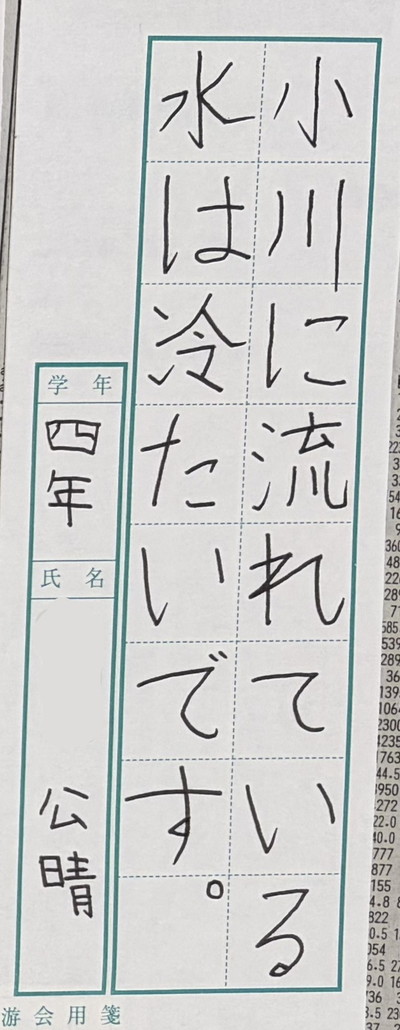 小川に流れている
水は冷たいです。
学年
四年
氏名
公晴
游会用箋